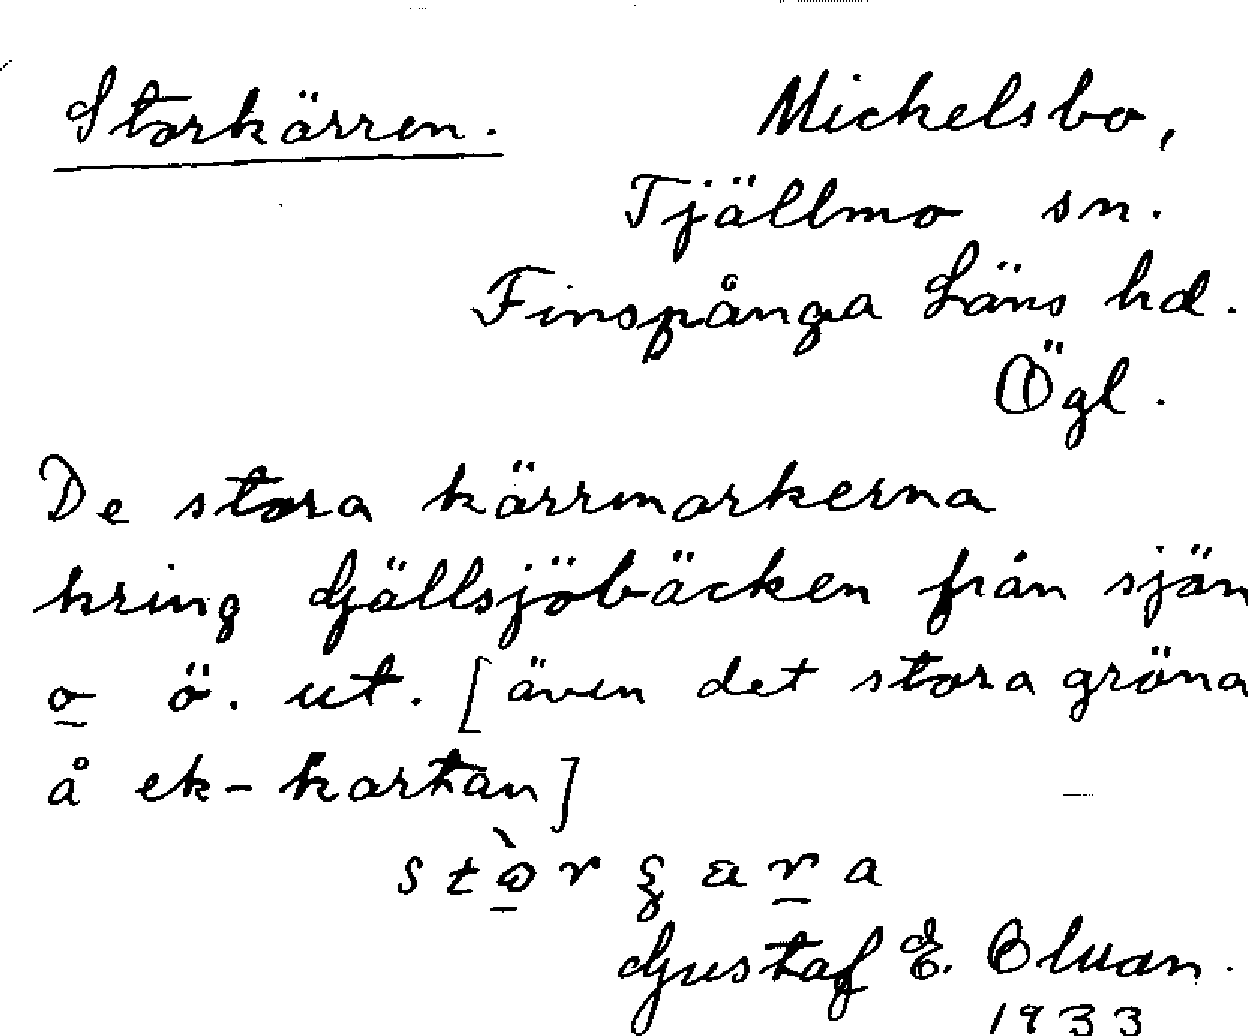 Storkärren.
Michelsbo,
Tjällmo sn.
Finspånga Läns hd.
Ögl.
De stora kärrmarkerna
kring Gjällsjöbäcken från sjön
o ö. ut. [även det stora gröna
å ek-kartan]
Gustaf E.
1933